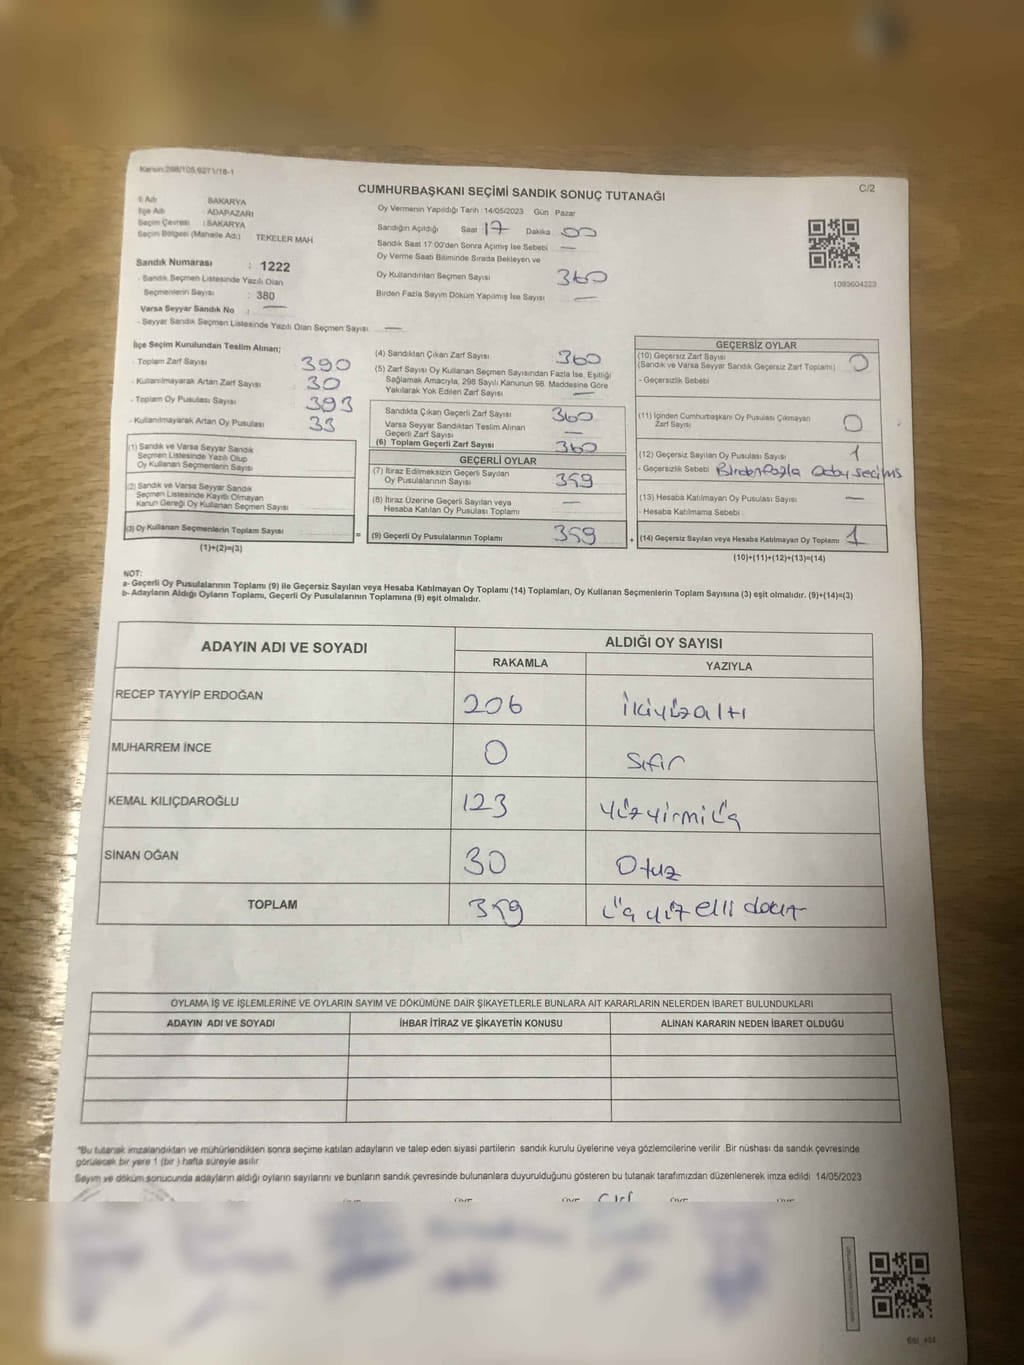 Kanun:298/105,6271/18-1
C/2
CUMHURBAŞKANI SEÇİMİ SANDIK SONUÇ TUTANAĞI
İl Adı SAKARYA
İlçe Adı ADAPAZARI
Seçim Çevresi : SAKARYA
Seçim Bölgesi (Mahalle Adı) TEKELER MAH
Sandık Numarası : 1222
- Sandık Seçmen Listesinde Yazılı Olan
Seçmenlerin Sayısı : 380
Varsa Seyyar Sandık No : —
- Seyyar Sandık Seçmen Listesinde Yazılı Olan Seçmen Sayısı —
Oy Vermenin Yapıldığı Tarih :14/05/2023 Gün Pazar
Sandığın Açıldığı Saat 17 Dakika 00
Sandık Saat 17:00'den Sonra Açımış İse Sebebi —
Oy Verme Saati Bitiminde Sırada Bekleyen ve
Oy Kullandırılan Seçmen Sayısı 360
Birden Fazla Sayım Döküm Yapılmış İse Sayısı —
1093604223
İlçe Seçim Kurulundan Teslim Alınan;
- Toplam Zarf Sayısı 390
- Kullanılmayarak Artan Zarf Sayısı 30
- Toplam Oy Pusulası Sayısı 393
- Kullanılmayarak Artan Oy Pusulası 33
(1) Sandık ve Varsa Seyyar Sandık
Seçmen Listesinde Yazılı Olup
Oy Kullanan Seçmenlerin Sayısı
(2) Sandık ve Varsa Seyyar Sandık
Seçmen Listesinde Kayıtlı Olmayan
Kanun Gereği Oy Kullanan Seçmen Sayısı
(3) Oy Kullanan Seçmenlerin Toplam Sayısı
(1)+(2)=(3)
(4) Sandıktan Çıkan Zarf Sayısı 360
(5) Zarf Sayısı Oy Kullanan Seçmen Sayısından Fazla İse, Eşitliği
Sağlamak Amacıyla, 298 Sayılı Kanunun 98. Maddesine Göre
Yakılarak Yok Edilen Zarf Sayısı —
Sandıkta Çıkan Geçerli Zarf Sayısı 360
Varsa Seyyar Sandıktan Teslim Alınan
Geçerli Zarf Sayısı —
(6) Toplam Geçerli Zarf Sayısı 360
GEÇERLİ OYLAR
(7) İtiraz Edilmeksizin Geçerli Sayılan
Oy Pusulalarının Sayısı 359
(8) İtiraz Üzerine Geçerli Sayılan veya
Hesaba Katılan Oy Pusulası Toplamı —
= (9) Geçerli Oy Pusulalarının Toplamı 359
GEÇERSİZ OYLAR
(10) Geçersiz Zarf Sayısı 0
(Sandık ve Varsa Seyyar Sandık Geçersiz Zarf Toplamı)
- Geçersizlik Sebebi
(11) İçinden Cumhurbaşkanı Oy Pusulası Çıkmayan
Zarf Sayısı 0
(12) Geçersiz Sayılan Oy Pusulası Sayısı 1
- Geçersizlik Sebebi Birden fazla aday seçimş
(13) Hesaba Katılmayan Oy Pusulası Sayısı —
- Hesaba Katılmama Sebebi
+ (14) Geçersiz Sayılan veya Hesaba Katılmayan Oy Toplamı 1
(10)+(11)+(12)+(13)=(14)
NOT:
a- Geçerli Oy Pusulalarının Toplamı (9) ile Geçersiz Sayılan veya Hesaba Katılmayan Oy Toplamı (14) Toplamları, Oy Kullanan Seçmenlerin Toplam Sayısına (3) eşit olmalıdır. (9)+(14)=(3)
b- Adayların Aldığı Oyların Toplamı, Geçerli Oy Pusulalarının Toplamına (9) eşit olmalıdır.
ADAYIN ADI VE SOYADI ALDIĞI OY SAYISI
RAKAMLA YAZIYLA
RECEP TAYYİP ERDOĞAN 206 ikiyüzaltı
MUHARREM İNCE 0 Sıfır
KEMAL KILIÇDAROĞLU 123 yüzyirmiüç
SİNAN OĞAN 30 Otuz
TOPLAM 359 üç yüz elli dokuz
OYLAMA İŞ VE İŞLEMLERİNE VE OYLARIN SAYIM VE DÖKÜMÜNE DAİR ŞİKAYETLERLE BUNLARA AİT KARARLARIN NELERDEN İBARET BULUNDUKLARI
ADAYIN ADI VE SOYADI İHBAR İTİRAZ VE ŞİKAYETİN KONUSU ALINAN KARARIN NEDEN İBARET OLDUĞU
*Bu tutanak imzalandıktan ve mühürlendikten sonra seçime katılan adayların ve talep eden siyasi partilerin sandık kurulu üyelerine veya gözlemcilerine verilir .Bir nüshası da sandık çevresinde
görülecek bir yere 1 (bir ) hafta süreyle asılır
Sayım ve döküm sonucunda adayların aldığı oyların sayılarını ve bunların sandık çevresinde bulunanlara duyurulduğunu gösteren bu tutanak tarafımızdan düzenlenerek imza edildi 14/05/2023